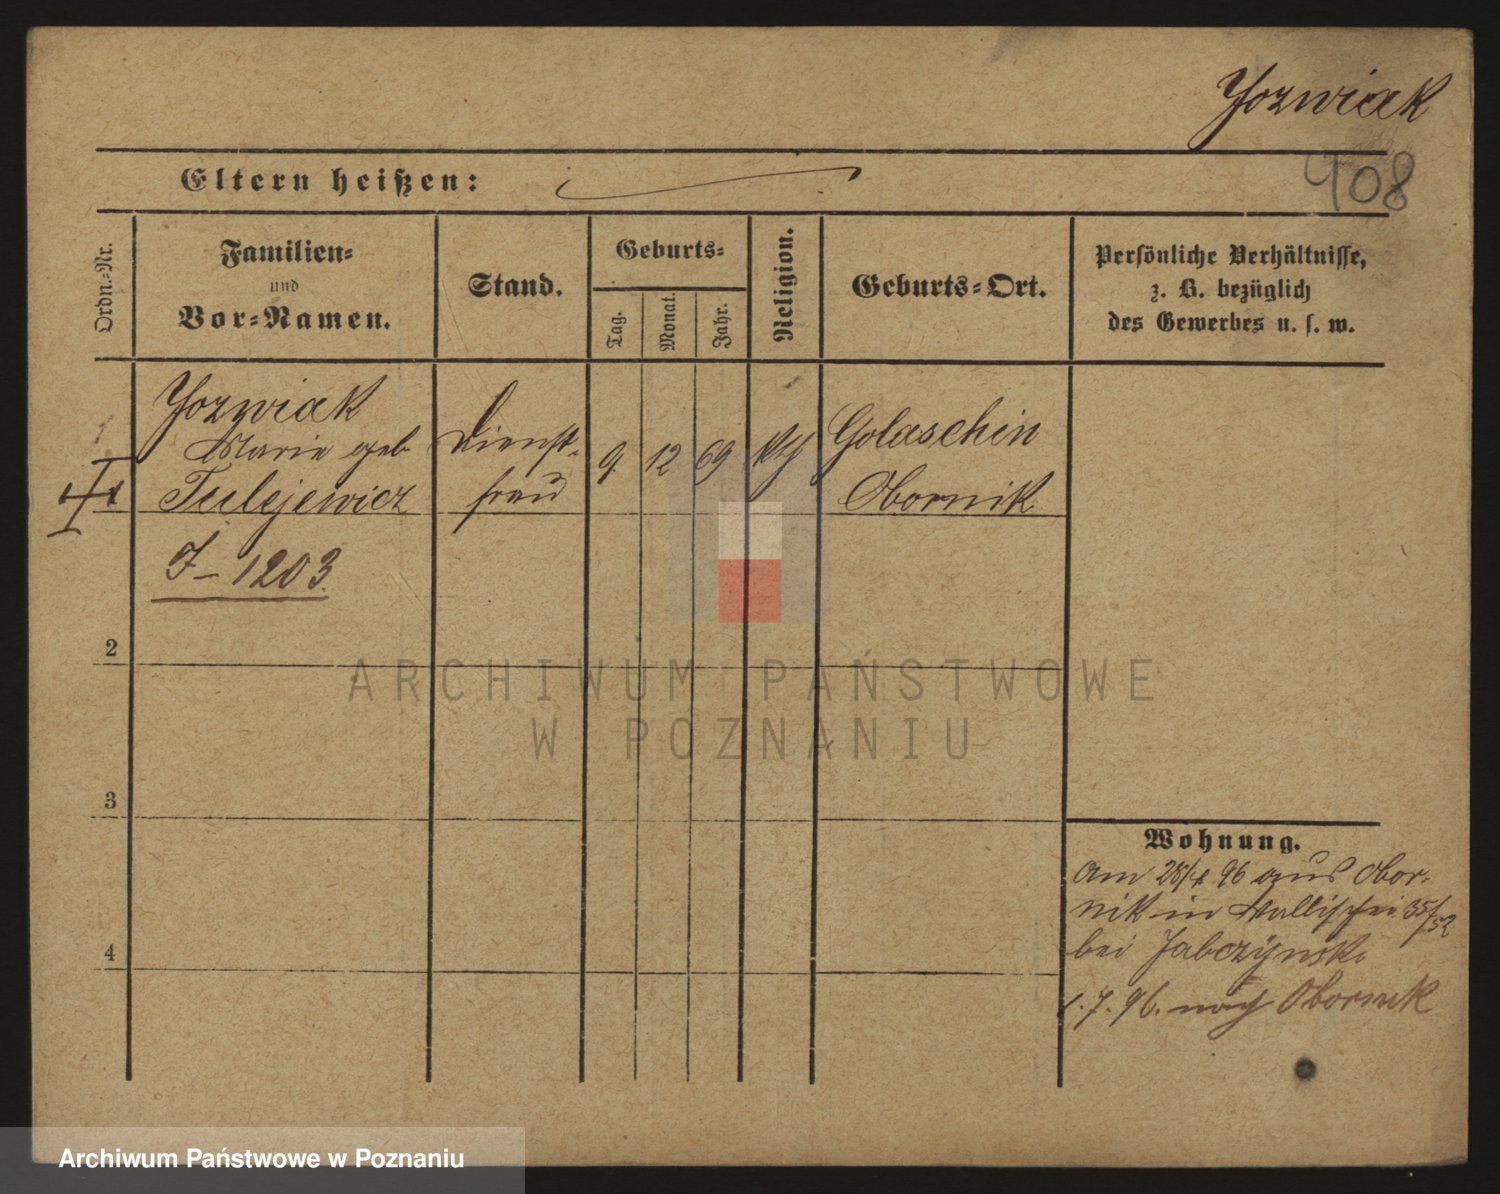 Yozwiak
408
Eltern heißen:
Ordn.-Nr.
Familien-
und
Vor-Namen.
Stand.
Geburts-
Tag.
Monat.
Jahr.
Religion.
Geburts-Ort.
Persönliche Verhältnisse,
z. B. bezüglich
des Gewerbes u. s. w.
Yozwiak
Marie geb
Tulejewicz
Dienst-
frau
9. 12 69
kth
Golaschin
Obornik
J-1203.
2
3
4
Wohnung.
Am 28/4 96 aus Obor-
nik in Wallischei 35/52
bei Jabczynski
1.7.96. nach Obornik
ARCHIWUM PAŃSTWOWE
W POZNANIU
Archiwum Państwowe w Poznaniu